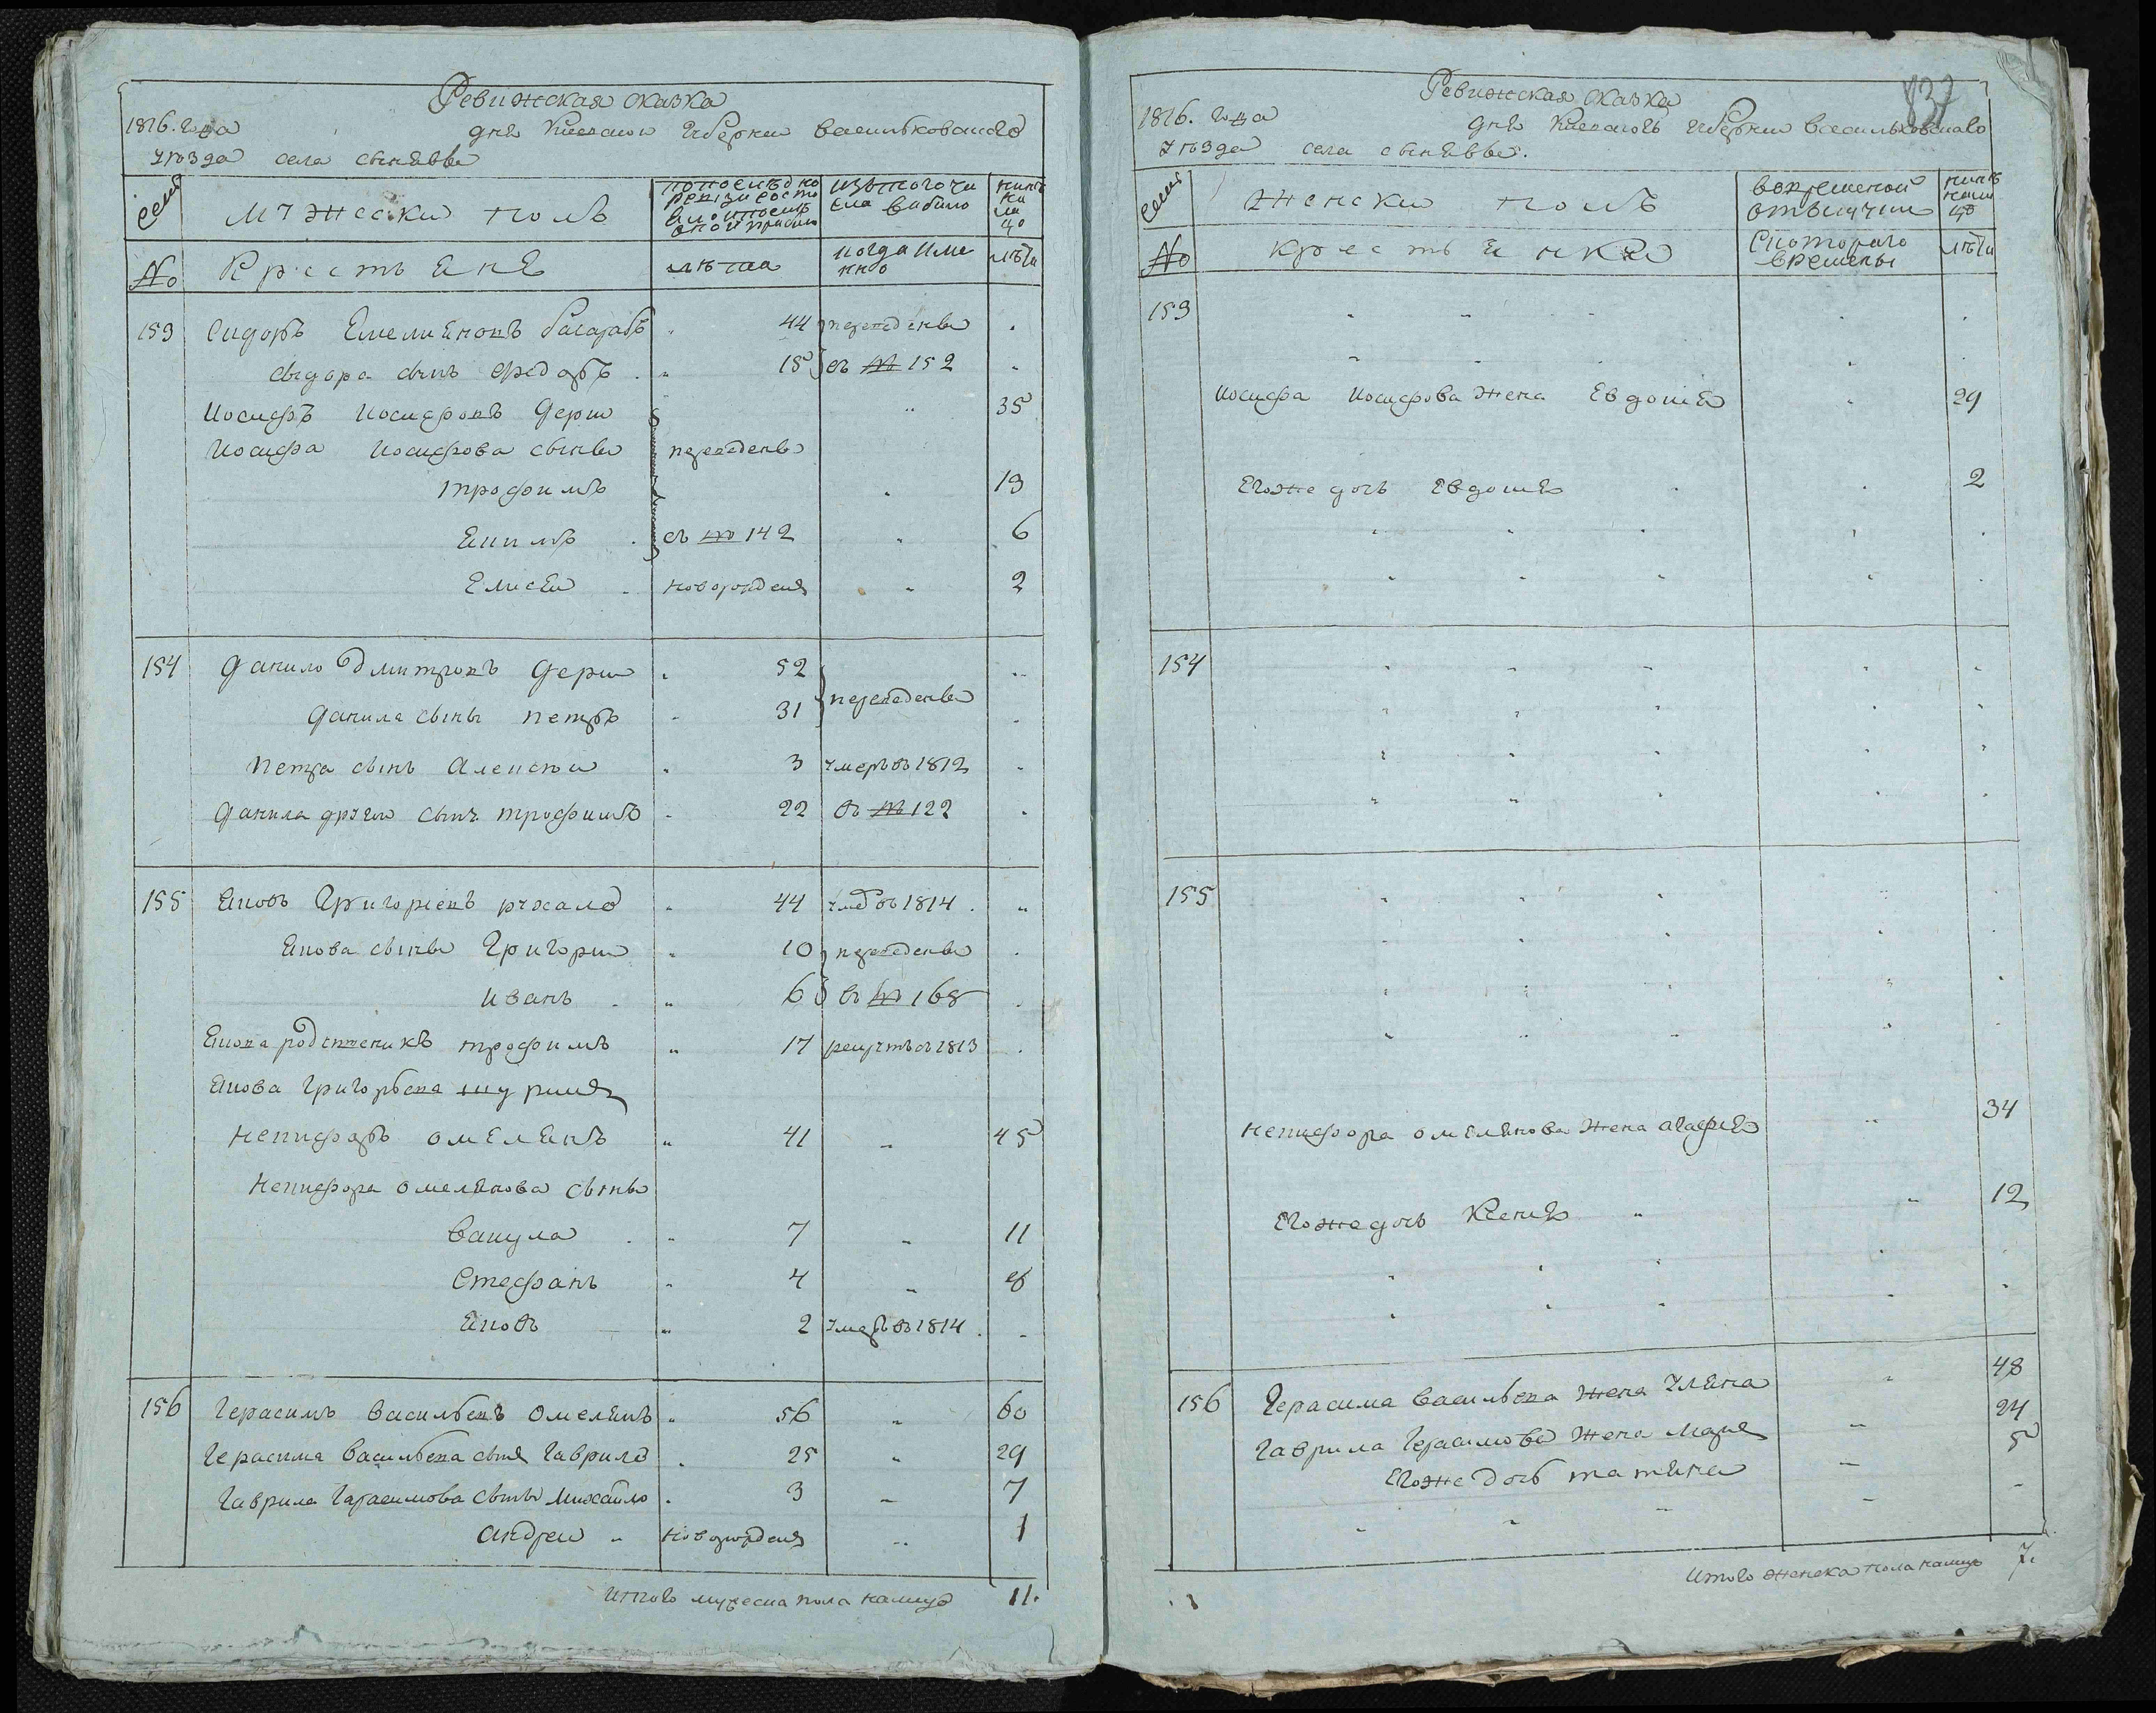 Ревижская сказка
1816. года дня Киевской Губернии Васильковского
уезда села сынявы
Семя мужески полъ по последнои ревизии состояло и после оной прибыло изъ того числа выбило нинѣ на лицо
№ Крестьяне лѣта когда имянно лѣта
153 Сидоръ Емелияновъ басарабъ 44 переведены
Сидора сынъ Федоръ 15 въ № 152
Иосифъ Иосифовъ Дерии 35
Иосифа Иосифова сыны переведены
трофимъ 13
Якимъ съ № 142 6
Елисеи новорожденя 2
154 Данило Дмитровъ Дерии 52
Данила сыны петръ 31 переведены
петра сынъ Алексеи 3 умеръ въ 1812
Данила другои сынъ трофимъ 22 въ № 122
155 Яковъ Григориевъ рухало 44 умер въ 1814
Якова сыны Григории 10 переведены
иванъ 6 въ № 168
Якова родственикъ трофимъ 17 рекрутъ въ 1813
Якова Григорьева шурия
Никифоръ омелянъ 41 45
Никифора омелянова сыны
Вакула 7 11
Стефанъ 4 8
Яковъ 2 умеръ въ 1814
156 Герасимъ Васильевъ Омелянъ 56 60
Герасима Васильева сыня Гаврило 25 29
Гаврила Герасимова сыны Михаило 3 7
Андреи новорожденя 1
Итого мужеска пола налицо 11.
837
Ревижская сказка
1816. года дня Киевской Губернии Васильковского
уезда села сынявы.
Семя женски полъ во временой отлучки нинѣ налицо
№ крестьянки С котораго времены лѣта
153
Иосифа Иосифова жена Евдокия 29
Егоже дочь Евдокия 2
154
155
Никифора омелянова жена агафия 34
Егоже дочь Ксения 12
156 Герасима Васильева жена Уляна 48
Гаврила Герасимова жена Мария 24
Егоже дочь татияна 5
Итого женска пола налицо 7.